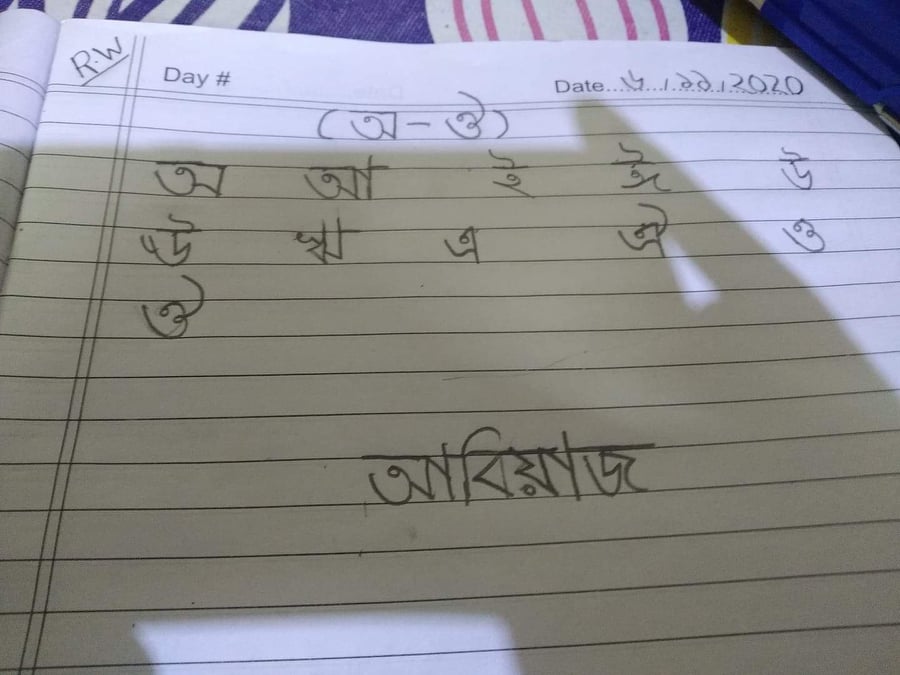 R.W
Day #
Date...৬...।১১।2020
(অ-ঔ)
অ আ ই ঈ উ
ঊ ঋ এ ঐ ও
ঔ
আবিয়াজ